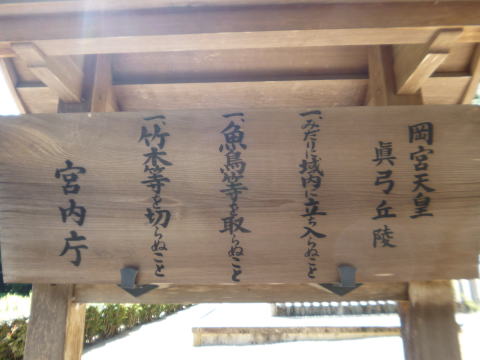 岡宮天皇
眞弓丘陵
一、みだりに域内に立ち入らぬこと
一、魚鳥等を取らぬこと
一、竹木等を切らぬこと
宮内庁